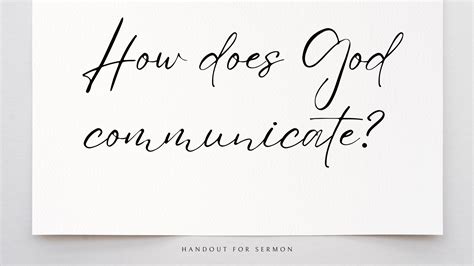 How does God
communicate?
HANDOUT FOR SERMON